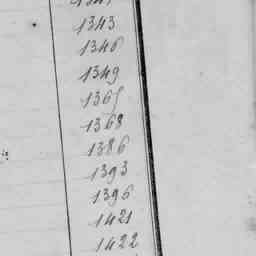 1343
1346
1349
1365
1368
1386
1393
1396
1421
1422